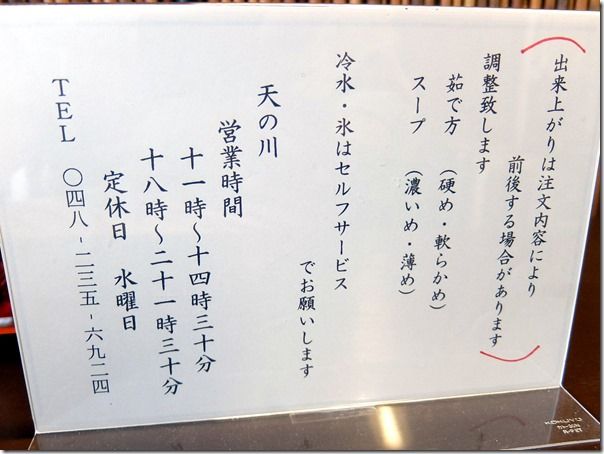 （出来上がりは注文内容により
前後する場合があります）
調整致します
茹で方　（硬め・軟らかめ）
スープ　（濃いめ・薄め）
冷水・氷はセルフサービス
でお願いします
天の川
営業時間
十一時～十四時三十分
十八時～二十一時三十分
定休日　水曜日
TEL　〇四八-二三五-六九二四
KOKUYO